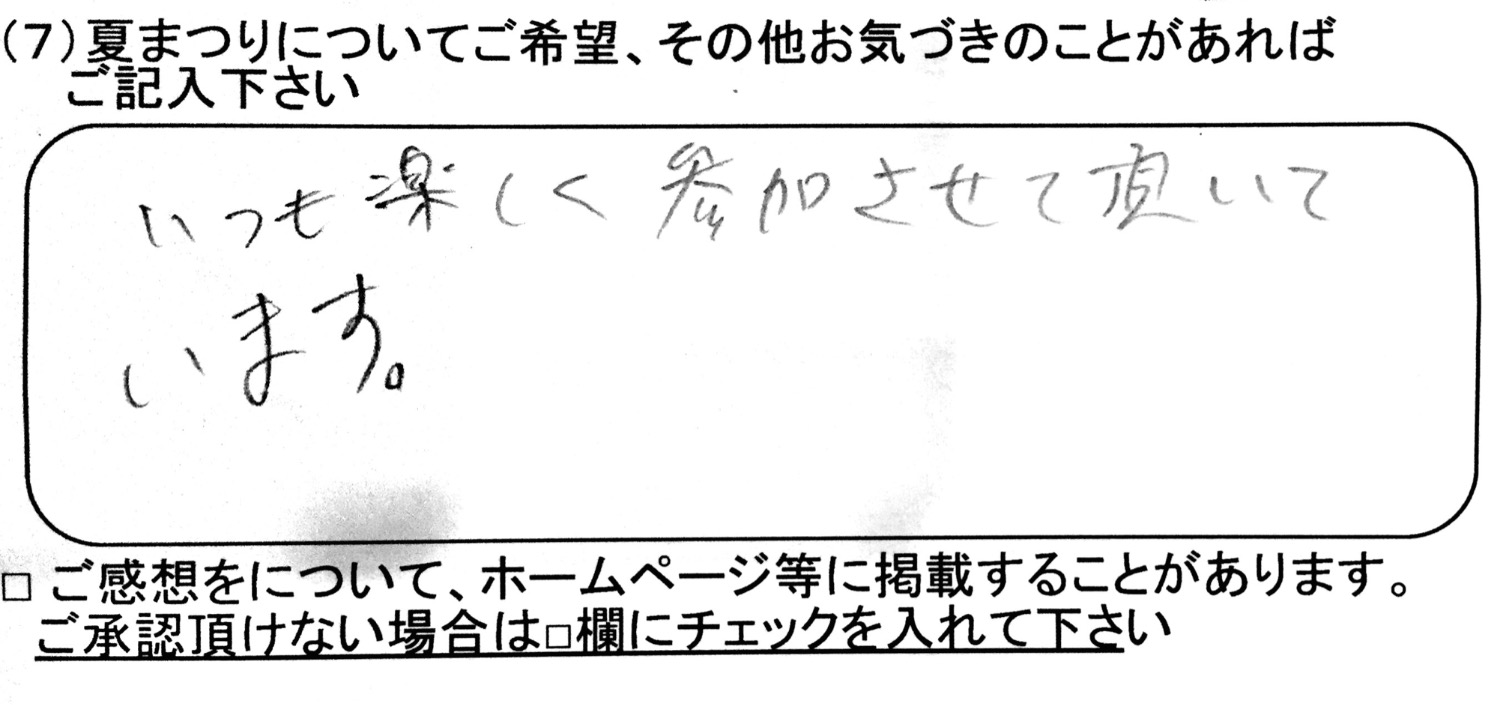 (7)夏まつりについてご希望、その他お気づきのことがあれば
ご記入下さい
いつも楽しく参加させて頂いて
います。
□ ご感想をについて、ホームページ等に掲載することがあります。
ご承認頂けない場合は□欄にチェックを入れて下さい